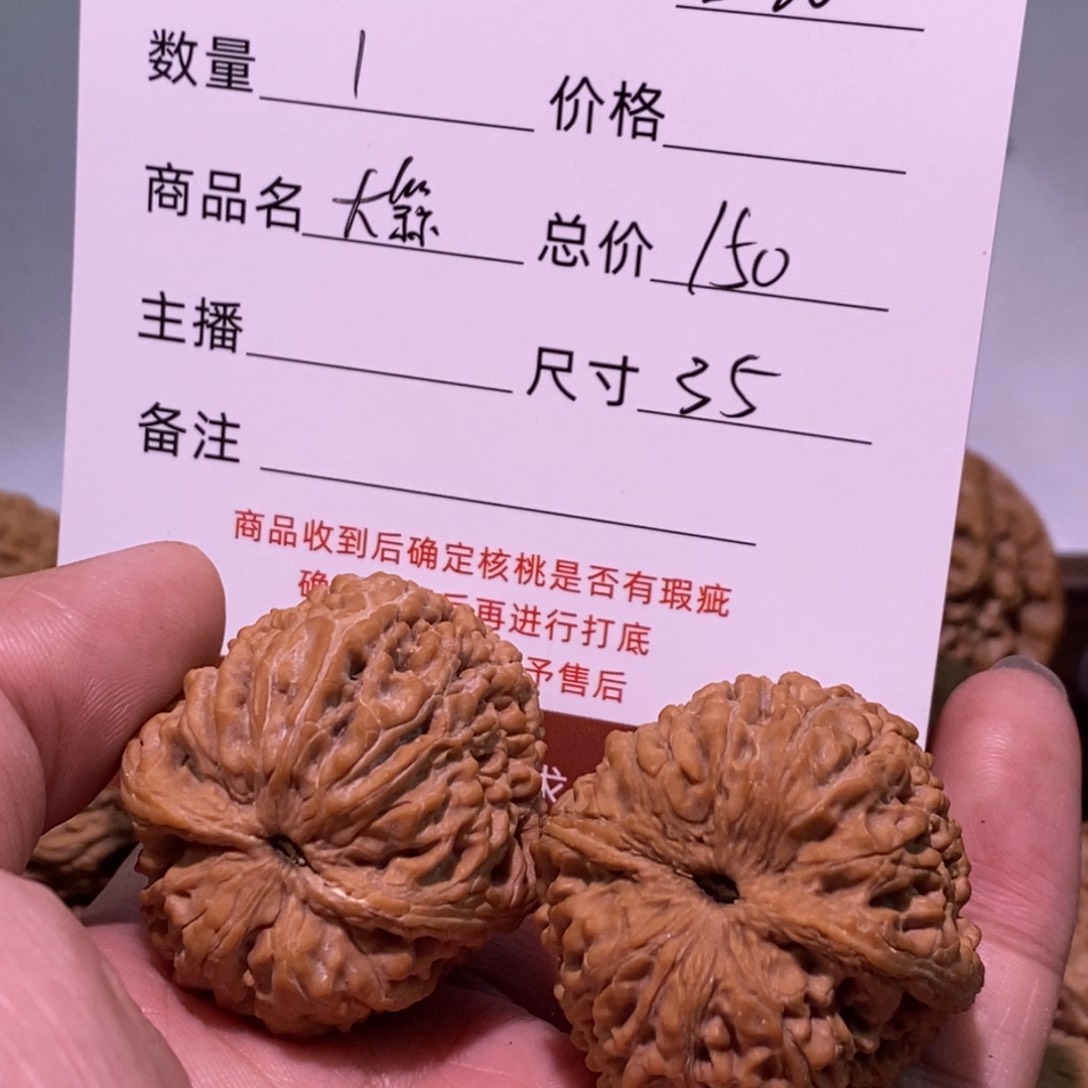 数量 1 价格
商品名 大蒜 总价 150
主播 尺寸 35
备注
商品收到后确定核桃是否有瑕疵
确 后再进行打底
予售后
求